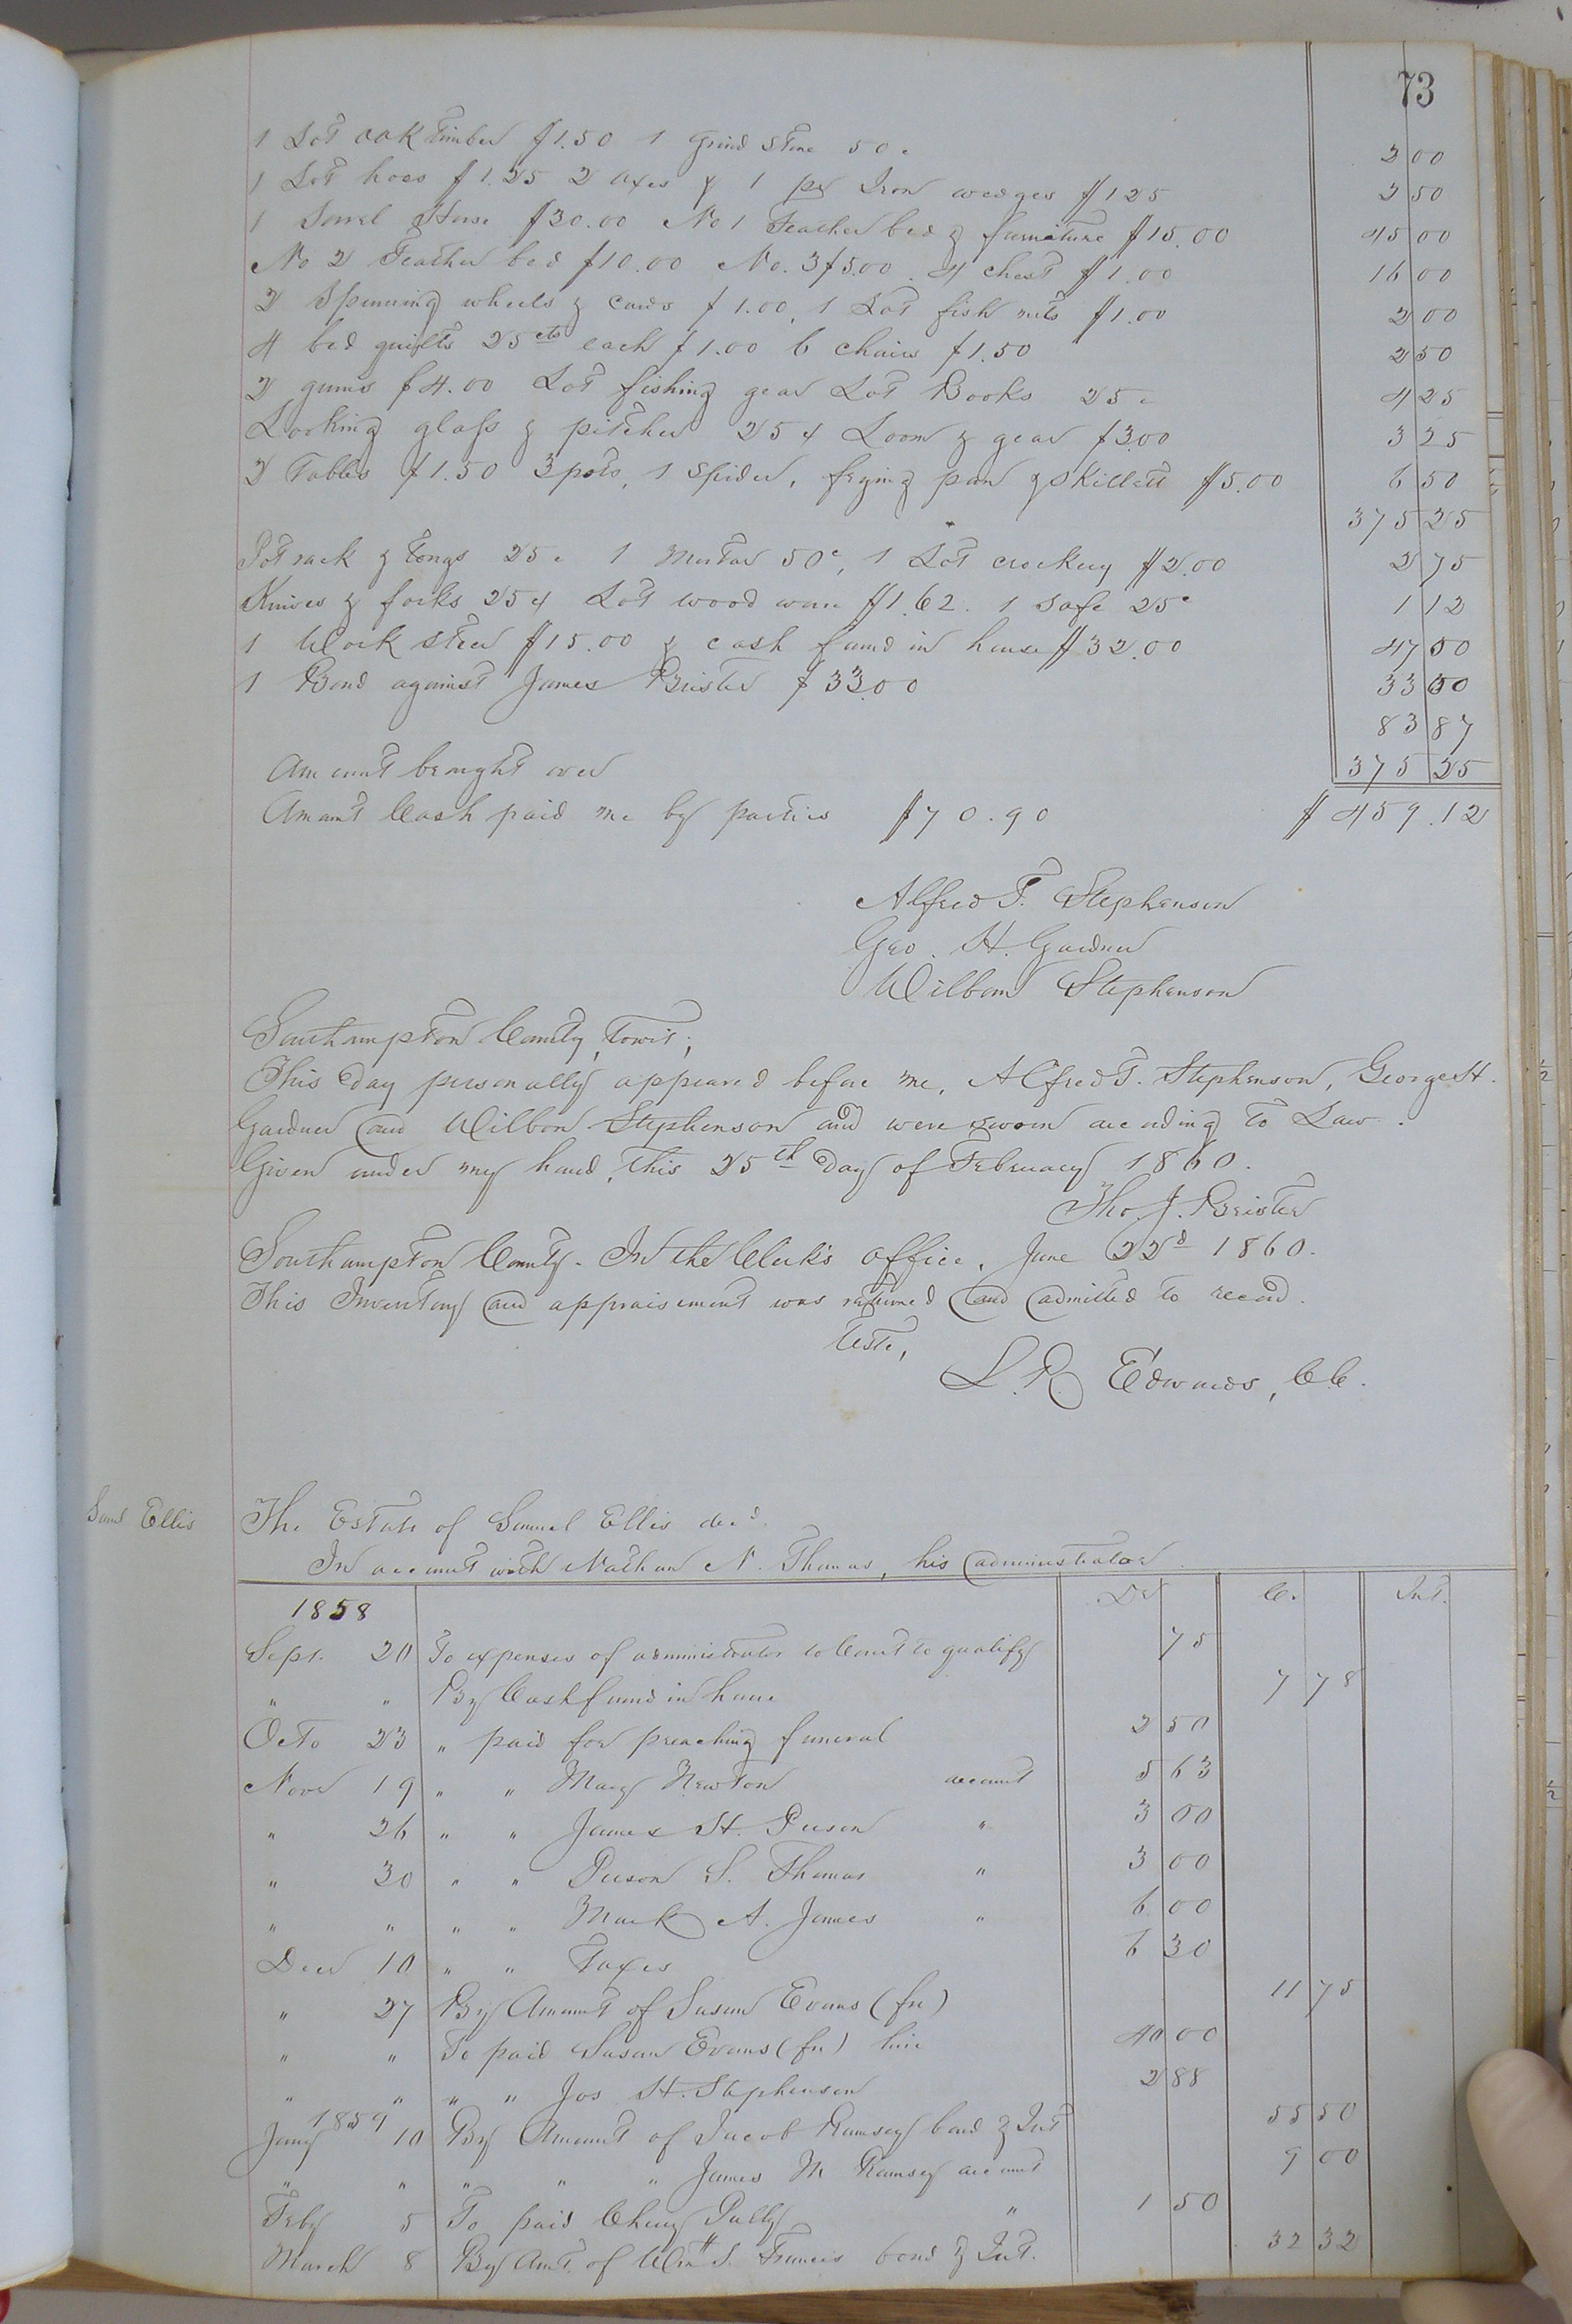 73
1 Lot oak timber $1.50 1 Grind Stone 50c 2 00
1 Lot hoes $1.25 2 axes & 1 pr Iron wedges $1 25 2 50
1 Sorrel Horse $30.00 No 1 Feather bed & furniture $15.00 45 00
No 2 Feather bed $10.00 No. 3 $5.00. 4 chest $1.00 16 00
2 Spinning wheels & cards $1.00, 1 Lot fish nets $1.00 2 00
4 bed quilts 25cts each $1.00 6 chairs $1.50 2 50
2 guns $4.00 Lot fishing gear Lot Books 25c 4 25
Looking glass & pitcher 25c Loom & gear $3.00 3 25
2 Tables $1.50 3 pots, 1 Spider, frying pan & Skillett $5.00 6 50
375 25
Pot rack & tongs 25c 1 Mortar 50c, 1 Lot crockery $2.00 2 75
Knives & forks 25c Lot wood ware $1.62. 1 Safe 25c 1 12
1 Work steer $15.00 & cash found in house $32.00 47 00
1 Bond against James Brister $33.00 33 00
83 87
Amount brought over 375 25
Amount Cash paid me by parties $70.90 $459.12
Alfred T. Stephenson
Geo. H. Gardner
Wilbon Stephenson
Southampton County, towit;
This day personally appeared before me, Alfred T. Stephenson, George H.
Gardner and Wilbon Stephenson and were sworn according to Law.
Given under my hand, this 25th day of February 1860.
Tho. J. Brister
Southampton County. In the Clerk's office, June 22d 1860.
This Inventory and appraisement was returned and admitted to record.
Teste,
L. R. Edwards, C.C.
Saml Ellis
The Estate of Samuel Ellis decd.
In account with Nathan N. Thomas, his administrator.
1858 Dr C. Int.
Sept. 20 To expenses of administrator to Court to qualify 75
" " By Cash found in house 7 78
Octo 23 " paid for preaching funeral 2 50
Novr 19 " " Mary Newton account 5 63
" 26 " " James H. Person " 3 00
" 30 " " Person S. Thomas " 3 00
" " " " Mark A. James " 6 00
Decr 10 " " Taxes 6 30
" 27 By Amount of Susan Evans (fn) 11 75
" " To paid Susan Evans (fn) hire 40 00
" " " " Jos H. Stephenson 2 88
1859
Jany 10 By Amount of Jacob Ramsey bond & Int 55 50
" " " " " James M Ramsey account 9 00
Feby 5 To paid Cherry Pully " 1 50
March 8 By Amt. of Wm S. Francis bond & Int. 32 32